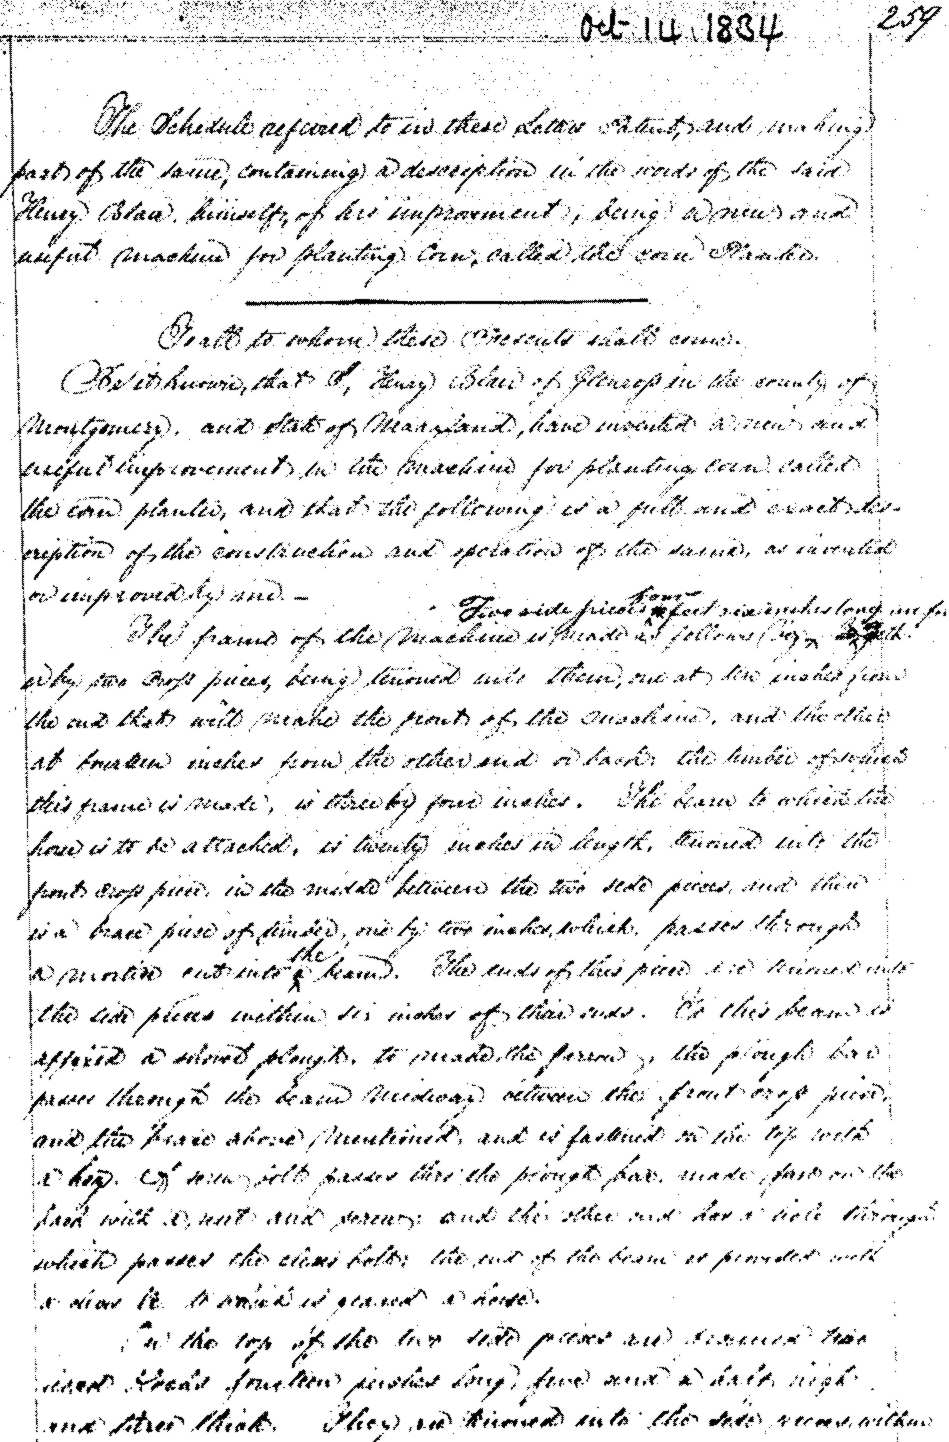 Oct 14. 1834
259
The Schedule refered to in these Letters Patent, and making
part of the same, containing a description in the words of the said
Henry Blair, himself, of his improvement, being a new and
useful machine for planting Corn, called the corn Planter.
To all to whom these Presents shall come.
Be it known, that I, Henry Blair of Glenross in the county of
Montgomery, and State of Maryland, have invented a new and
useful improvement in the machine for planting corn called
the corn planter, and that the following is a full and exact des-
cription of the construction and operation of the same, as invented
or improved by me. —
Two side pieces four feet six inches long
The frame of the machine is made as follows Viz, togeth
er by two cross pieces, being tenoned into them, one at ten inches from
the end that will make the front of the machine, and the other
at fourteen inches from the other end or back, the timber of which
this frame is made, is three by four inches. The beam to which the
horse is to be attached, is twenty inches in length, tenoned into the
front cross piece, in the middle between the two side pieces, and there
is a brace piece of timber, one by two inches, which, passes through
a mortise cut into the beam. The ends of this piece are tenoned into
the side pieces within six inches of their ends. To this beam is
affixed a shovel plough, to make the furrow, the plough bar
passes through the beam midway between the front cross piece,
and the brace above mentioned, and is fastened on the top with
a key. A screw bolt passes thro the plough bar, made fast on the
back with a nut and screw, and the other end has a hole through
which passes the clevis bolt; the end of the beam is provided with
a clevis to which is geared a horse.
In the top of the two side pieces are tenoned two
blocks fourteen inches long, five and a half high
and three thick. They are tenoned into the side pieces, within